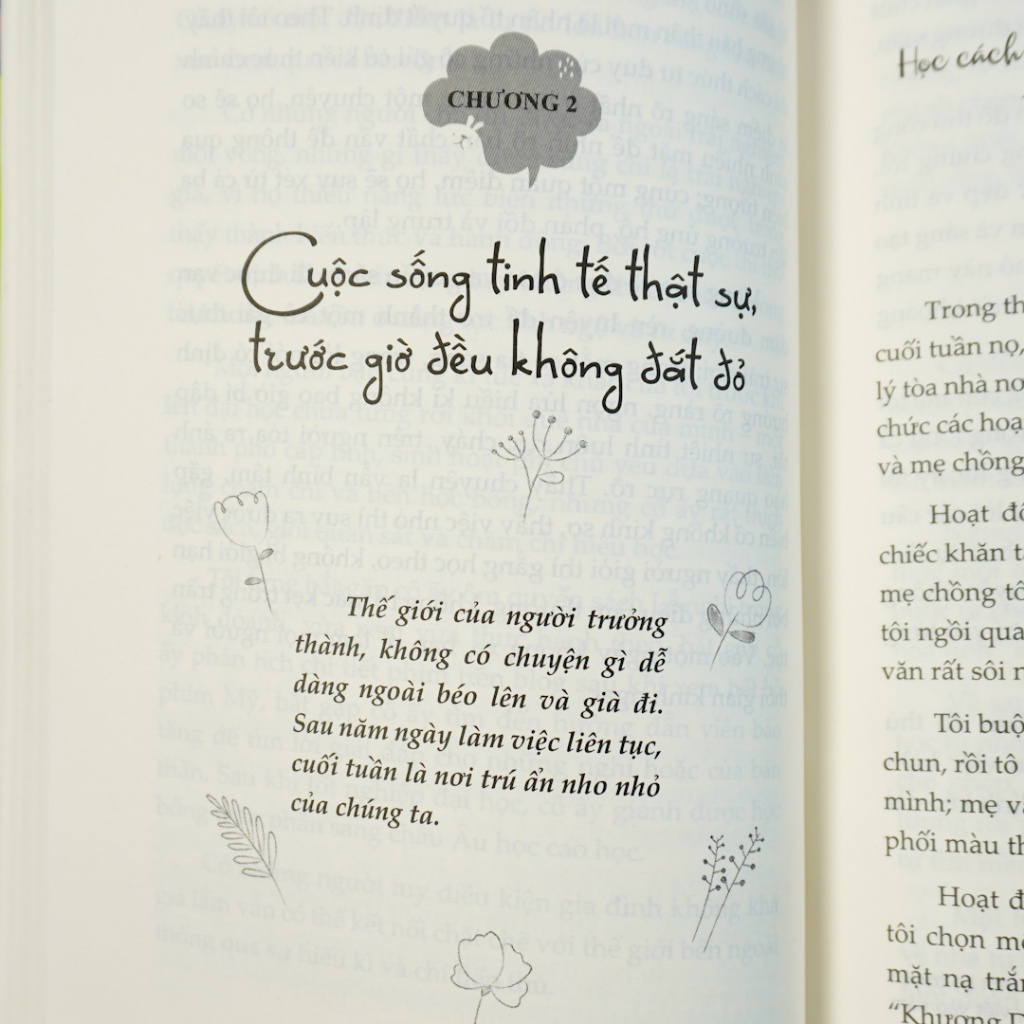 CHƯƠNG 2
Cuộc sống tinh tế thật sự,
trước giờ đều không đắt đỏ
Thế giới của người trưởng
thành, không có chuyện gì dễ
dàng ngoài béo lên và già đi.
Sau năm ngày làm việc liên tục,
cuối tuần là nơi trú ẩn nho nhỏ
của chúng ta.
Học cách
Trong th
cuối tuần nọ,
lý tòa nhà nơ
chức các hoạ
và mẹ chồng
Hoạt độ
chiếc khăn t
mẹ chồng tô
tôi ngồi qua
văn rất sôi n
Tôi buộ
chun, rồi tô
mình; mẹ v
phối màu th
Hoạt đ
tôi chọn m
mặt nạ trắn
“Khương D